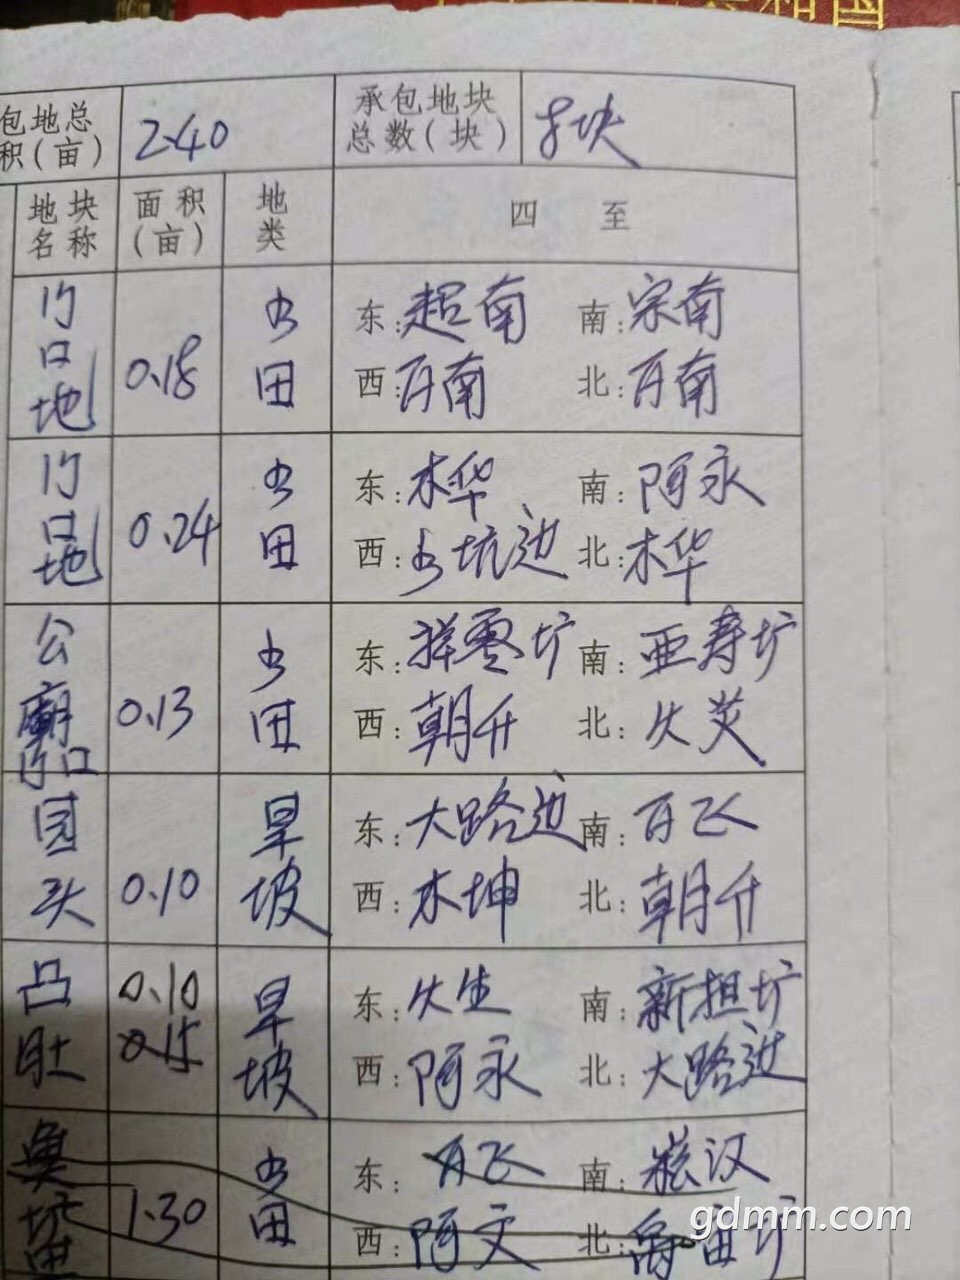 和国
包地总
积(亩)
2.40
承包地块
总数(块)
8块
地块
名称
面积
(亩)
地
类
四 至
竹
口
地
0.18
水
田
东:超南 南:宗南
西:月南 北:月南
竹
口
地
0.24
水
田
东:木华 南:阿永
西:水坑边 北:木华
公
廟
门口
0.13
水
田
东:祥零圹 南:亚寿圹
西:朝升 北:火英
园
头
0.10
旱
坡
东:大路边 南:月飞
西:木坤 北:朝升
凸
肚
0.10
0.15
旱
坡
东:火生 南:新担圹
西:阿永 北:大路边
1.30
水
田
东:月飞 南:汉
西:阿文 北:圹
gdmm.com